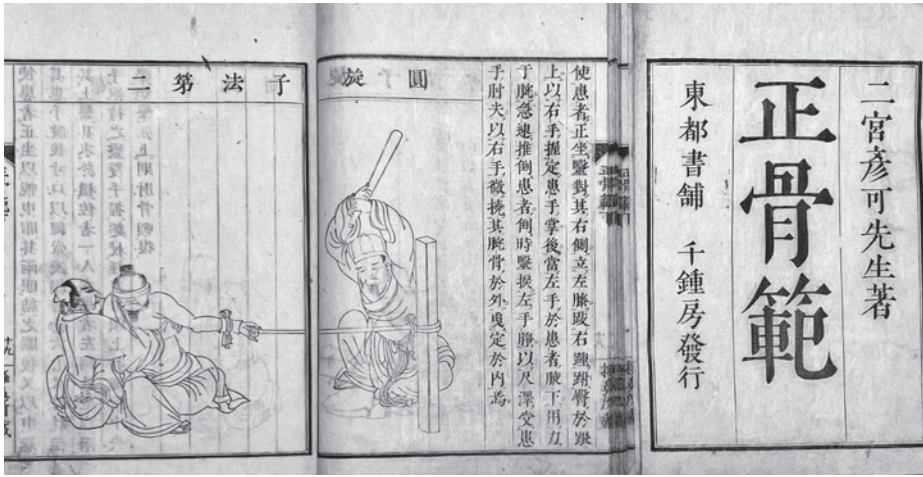 二宮彥可先生著
正骨範
東都書舖 千鍾房發行
使患者正坐醫對其右側立左膝跂右踵臀於跟
上以右手握定患手掌後當左手於患者腋下用力
于腕急速推倒患者倒時醫捩左手臂以尺澤受患
手肘夫以右手微撓其腕骨於外曳定於內焉
圓旋
子法第二